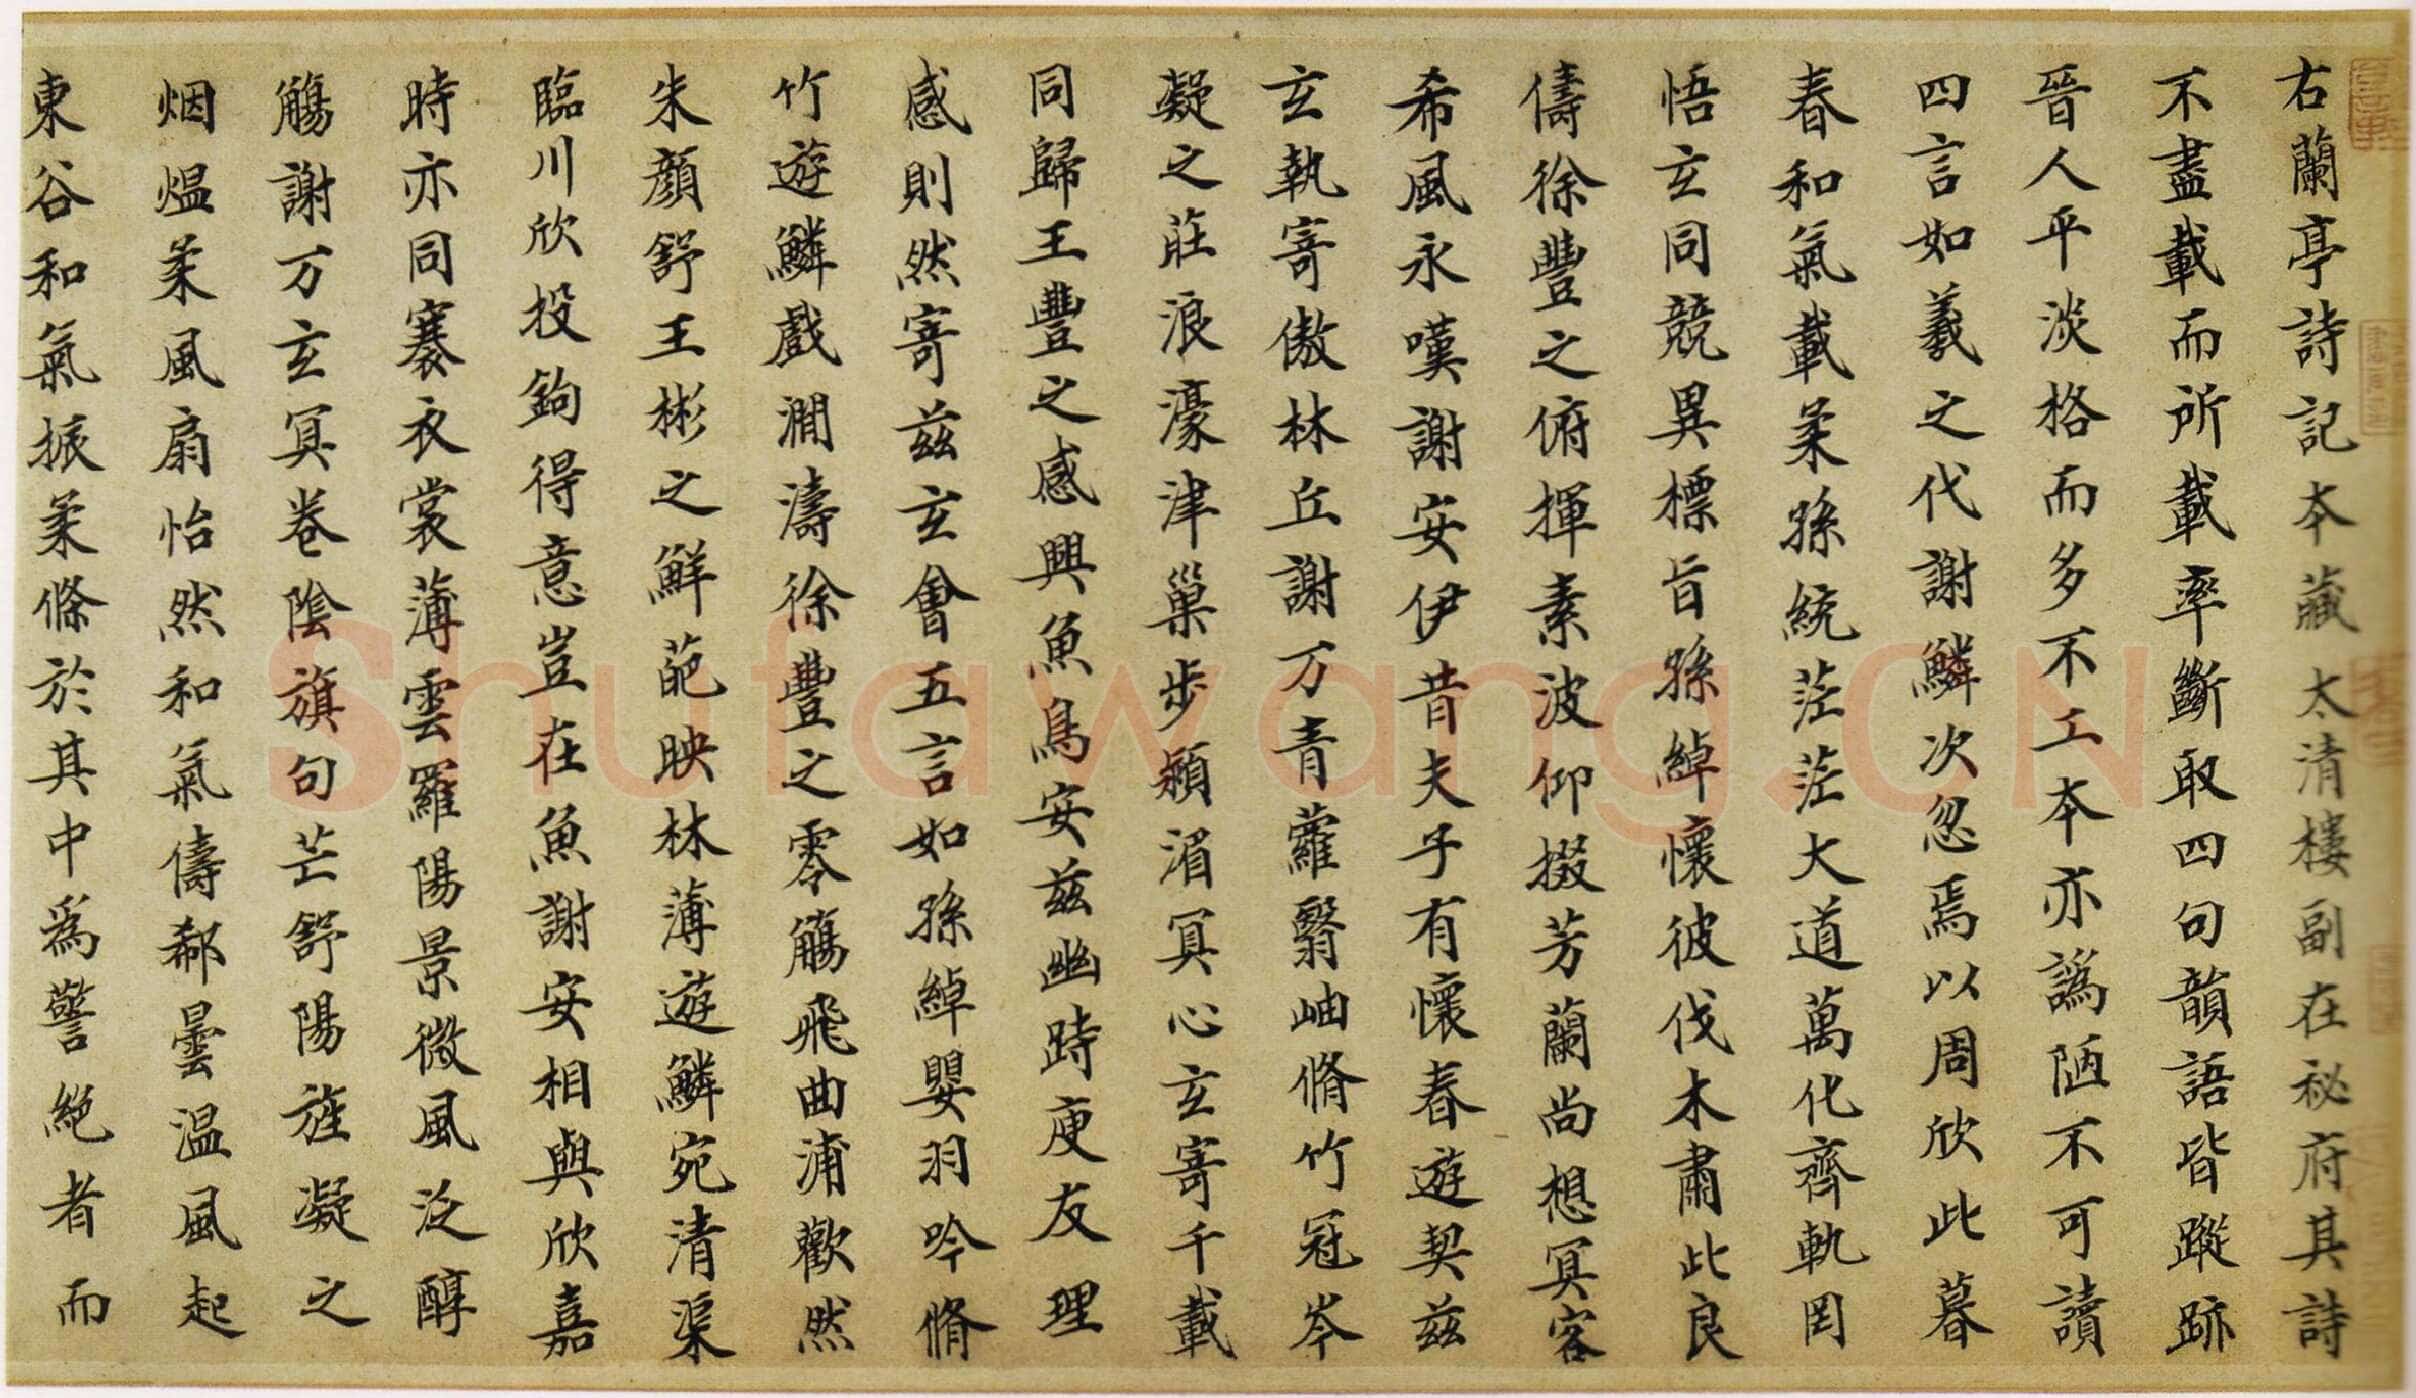 右蘭亭詩記本藏太清樓副在秘府其詩
不盡載而所載率斷取四句韻語皆蹤跡
晉人平淡格而多不工本亦譌陋不可讀
四言如羲之代謝鱗次忽焉以周欣此暮
春和氣載柔孫統茫茫大道萬化齊軌罔
悟玄同競異標旨孫綽懷彼伐木肅此良
儔徐豐之俯揮素波仰掇芳蘭尚想冥客
希風永嘆謝安伊昔夫子有懷春遊契茲
玄執寄傲林丘謝万青蘿翳岫脩竹冠岑
凝之莊浪濠津巢步潁湄冥心玄寄千載
同歸王豐之感興魚鳥安茲幽時庾友理
感則然寄茲玄會五言如孫綽嬰羽吟脩
竹遊鱗戲澗濤徐豐之零觴飛曲浦歡然
朱顏舒王彬之鮮葩映林薄遊鱗宛清渠
臨川欣投鉤得意豈在魚謝安相與欣嘉
時亦同褰衣裳薄雲羅陽景微風泛醇
觴謝万玄冥卷陰旗句芒舒陽旌凝之
烟熅柔風扇怡然和氣儔郗曇温風起
東谷和氣振柔條於其中為警絕者而
Shufawang.CN